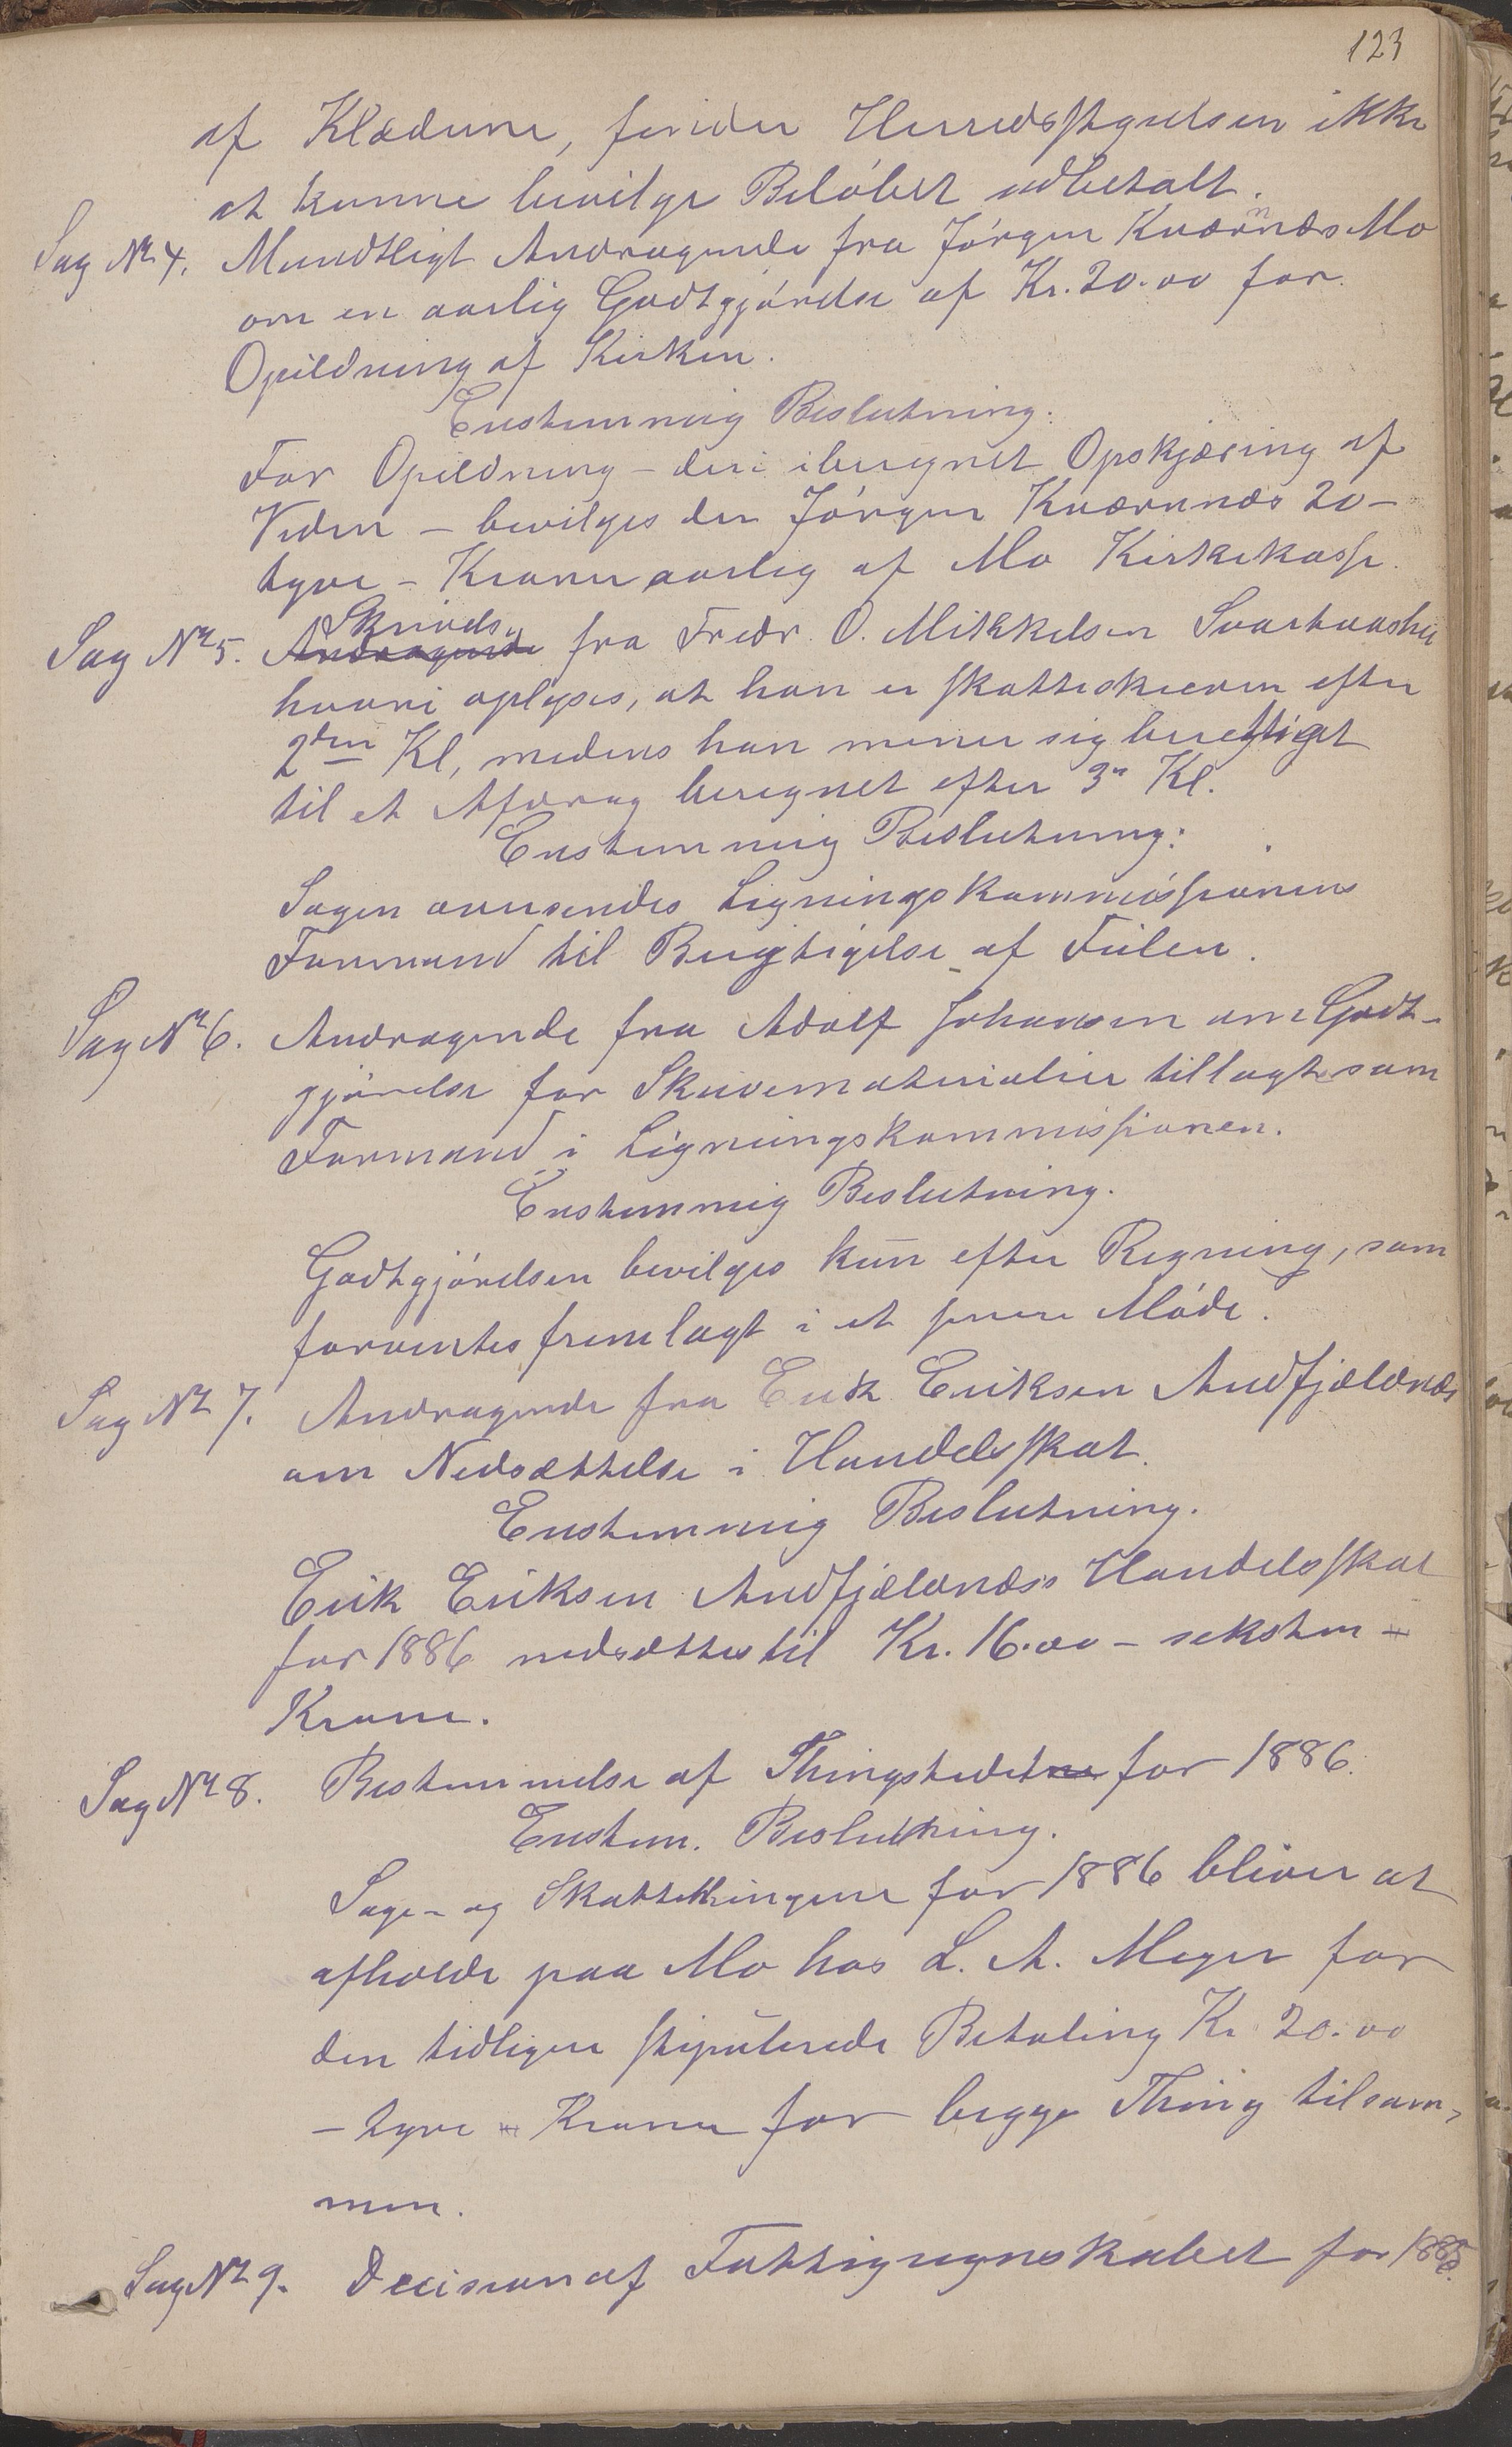 123
af Klæderne, finder Herredsstyrelsen ikke
at kunne bevilge Beløbet udbetalt.
Sag No 4. Mundtligt Andragende fra Jørgen Kværnnæs Mo
om en aarlig Godtgjørelse af Kr. 20.00 for
Opildning af Kirken.
Enstemmig Beslutning:
For Opildning – deri iberegnet Opskjæring af
Veden – bevilges der Jørgen Kværnnæs 20 –
tyve – Kroner aarlig af Mo Kirkekasse.
Sag No 5. Andragende Skrivelse fra Fredr. O. Mikkelsen Svartvashei
hvori oplyses, at han er skatteskreven efter
2den Kl, medens han mener sig berettiget
til et Afdrag beregnet efter 3e Kl.
Enstemmig Beslutning:
Sagen oversendes Ligningskommissionens
Formand til Berigtigelse af Feilen.
Sag No 6. Andragende fra Adolf Johansen om Godt-
gjørelse for Skrivematerialier tillagt som
Formand i Ligningskommissionen.
Enstemmig Beslutning.
Godtgjørelsen bevilges kun efter Regning, som
forventes fremlagt i et senere Møde.
Sag No 7. Andragende fra Erik Eriksen Andfjeldnæs
om Nedsættelse i Handelsskat.
Enstemmig Beslutning.
Erik Eriksen Andfjældnæss Handelsskat
for 1886 nedsættes til Kr. 16.00 – seksten –
Krone.
Sag No 8. Bestemmelse af Thingstedetne for 1886.
Enstem. Beslutning.
Sage- og Skattethingene for 1886 bliver at
afholde paa Mo hos L. A. Meyer for
den tidligere stipulerede Betaling Kr 20.00
– tyve – Kroner for begge Thing tilsam-
men.
Sag No 9. Decision af Fattigregnskabet for 1885.